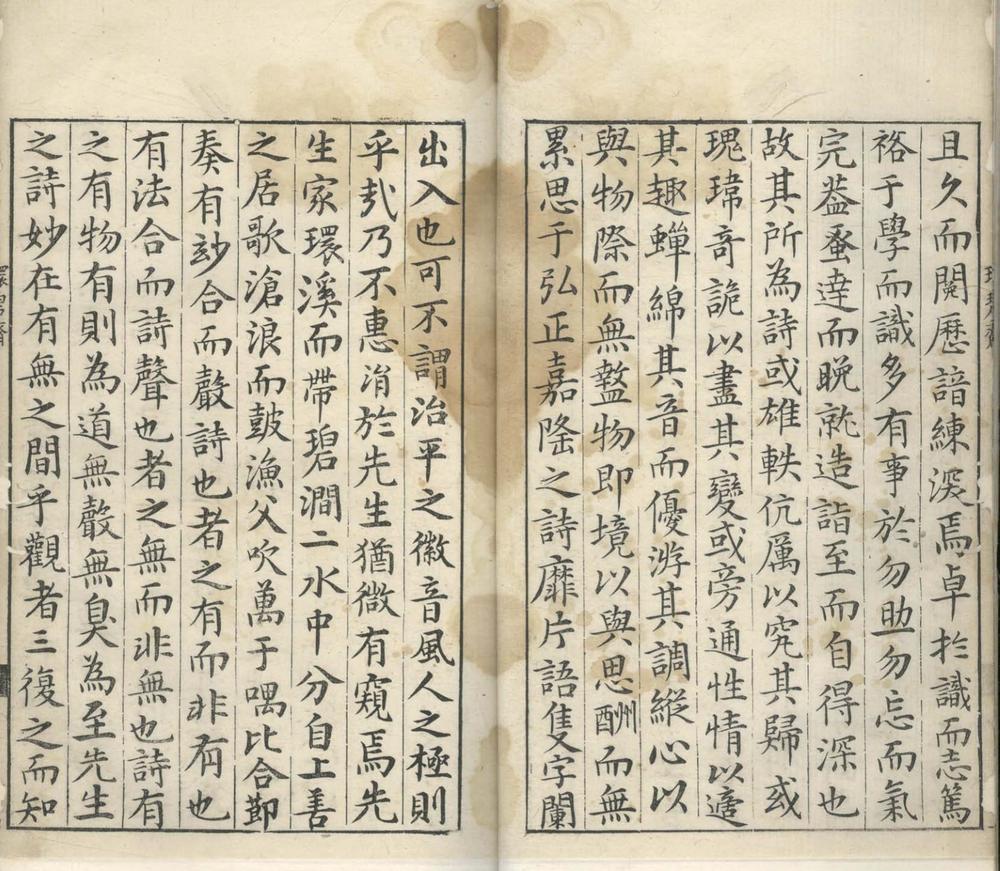 且久而閱歷諳練深焉卓於識而志篤
裕于學而識多有事於勿助勿忘而氣
完葢蚤達而晚就造詣至而自得深也
故其所為詩或雄軼伉厲以究其歸或
瑰瑋奇詭以盡其變或旁通性情以適
其趣蟬綿其音而優游其調縱心以
與物際而無盭物即境以與思酬而無
累思于弘正嘉隆之詩靡片語隻字闌
出入也可不謂治平之徽音風人之極則
乎㢤乃不惠㳙於先生猶微有窺焉先
生家環溪而帶碧澗二水中分自上善
之居歌滄浪而鼓漁父吹萬于喁比合節
奏有玅合而聲詩也者之有而非有也
有法合而詩聲也者之無而非無也詩有
之有物有則為道無聲無臭為至先生
之詩妙在有無之間乎觀者三復之而知